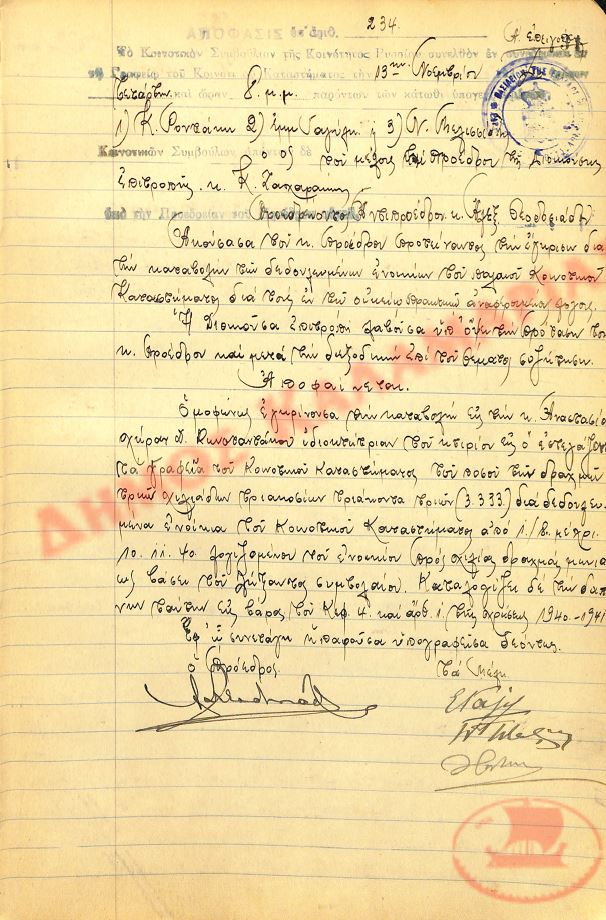 ΑΠΟΦΑΣΙΣ ὑπ' ἀριθ. 234.
Τὸ Κοινοτικὸν Συμβούλιον τῆς Κοινότητος συνελθὸν ἐν
τῷ Γραφείῳ τοῦ Κοινοτικοῦ Καταστήματος τὴν 13ην Νοεμβρίου
Τετάρτην καὶ ὥραν 8 μ.μ. παρόντων τῶν κάτωθι
1) Κ. Ροντάκη 2) Ἐμμ Γαλάνη & 3) Ν.
Κοινοτικῶν Συμβούλων
τοῦ μέλους τοῦ προέδρου τῆς Διοικούσης
Ἐπιτροπῆς κ. Κ.
ὑπὸ τὴν Προεδρείαν τοῦ Ἀντιπροέδρου κ. Ἀλεξ Θεοδοσιάδη
Ἀκούσασα τοῦ κ. Προέδρου προτείναντος τὴν ἔγκρισιν διὰ
τὴν καταβολὴν τῶν δεδουλευμένων ἐνοικίων τοῦ παλαιοῦ Κοινοτικοῦ
Καταστήματος διὰ τοὺς ἐν τῷ οἰκείῳ πρακτικῷ ἀναφερομένους λόγους.
Ἡ Διοικοῦσα Ἐπιτροπὴ λαβοῦσα ὑπ' ὄψει τὴν πρότασιν τοῦ
κ. Προέδρου καὶ μετὰ τὴν διεξοδικὴν ἐπὶ τοῦ θέματος συζήτησιν
Ἀποφαίνεται.
Ὁμοφώνως ἐγκρίνουσα τὴν καταβολὴν εἰς τὴν κ. Ἀναστασίαν
χήραν Κωνσταντάκου ἰδιοκτήτριαν τοῦ κτιρίου εἰς ὃ ἐστεγάζοντο
τὰ Γραφεῖα τοῦ Κοινοτικοῦ Καταστήματος τοῦ ποσοῦ τῶν δραχμῶν
τριῶν χιλιάδων τριακοσίων τριάκοντα τριῶν (3.333) διὰ δεδουλευ-
μένα ἐνοίκια τοῦ Κοινοτικοῦ Καταστήματος ἀπὸ 1/8. μέχρι
10.11.40. λογιζομένου τοῦ ἐνοικίου πρὸς χιλίας δραχμὰς μηνιαί-
ως βάσει τοῦ λήξαντος συμβολαίου. Καταλογίζει δὲ τὴν δαπά-
νην ταύτην εἰς βάρος τοῦ Κεφ. 4. καὶ ἄρθ. 1. τῆς χρήσεως 1940-1941
Ἐφ' ᾧ συνετάγη ἡ παροῦσα ὑπογραφεῖσα δεόντως.
ὁ Πρόεδρος
τὰ Μέλη
ΔΗΜΟΣ ΚΑΛΛΙΘΕΑΣ